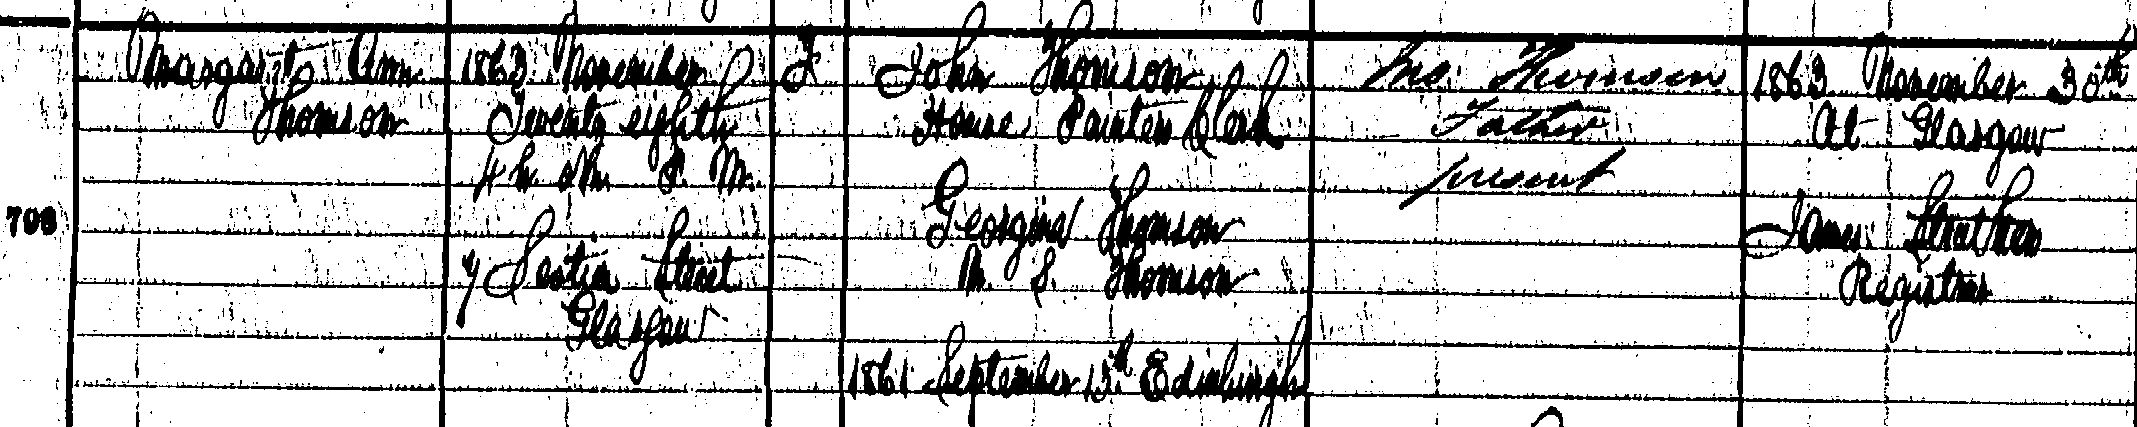 798
Margaret Ann
Thomson
1863 November
Twenty eighth
4 h 0 m. P. M.
7 Street
Glasgow
F
John Thomson
House Painters Clerk
Georgina Thomson
M. S. Thomson
1861 September 13th Edinburgh
Jno. Thomson
Father
present
1863 November 30th
At Glasgow
James Struthers
Registrar